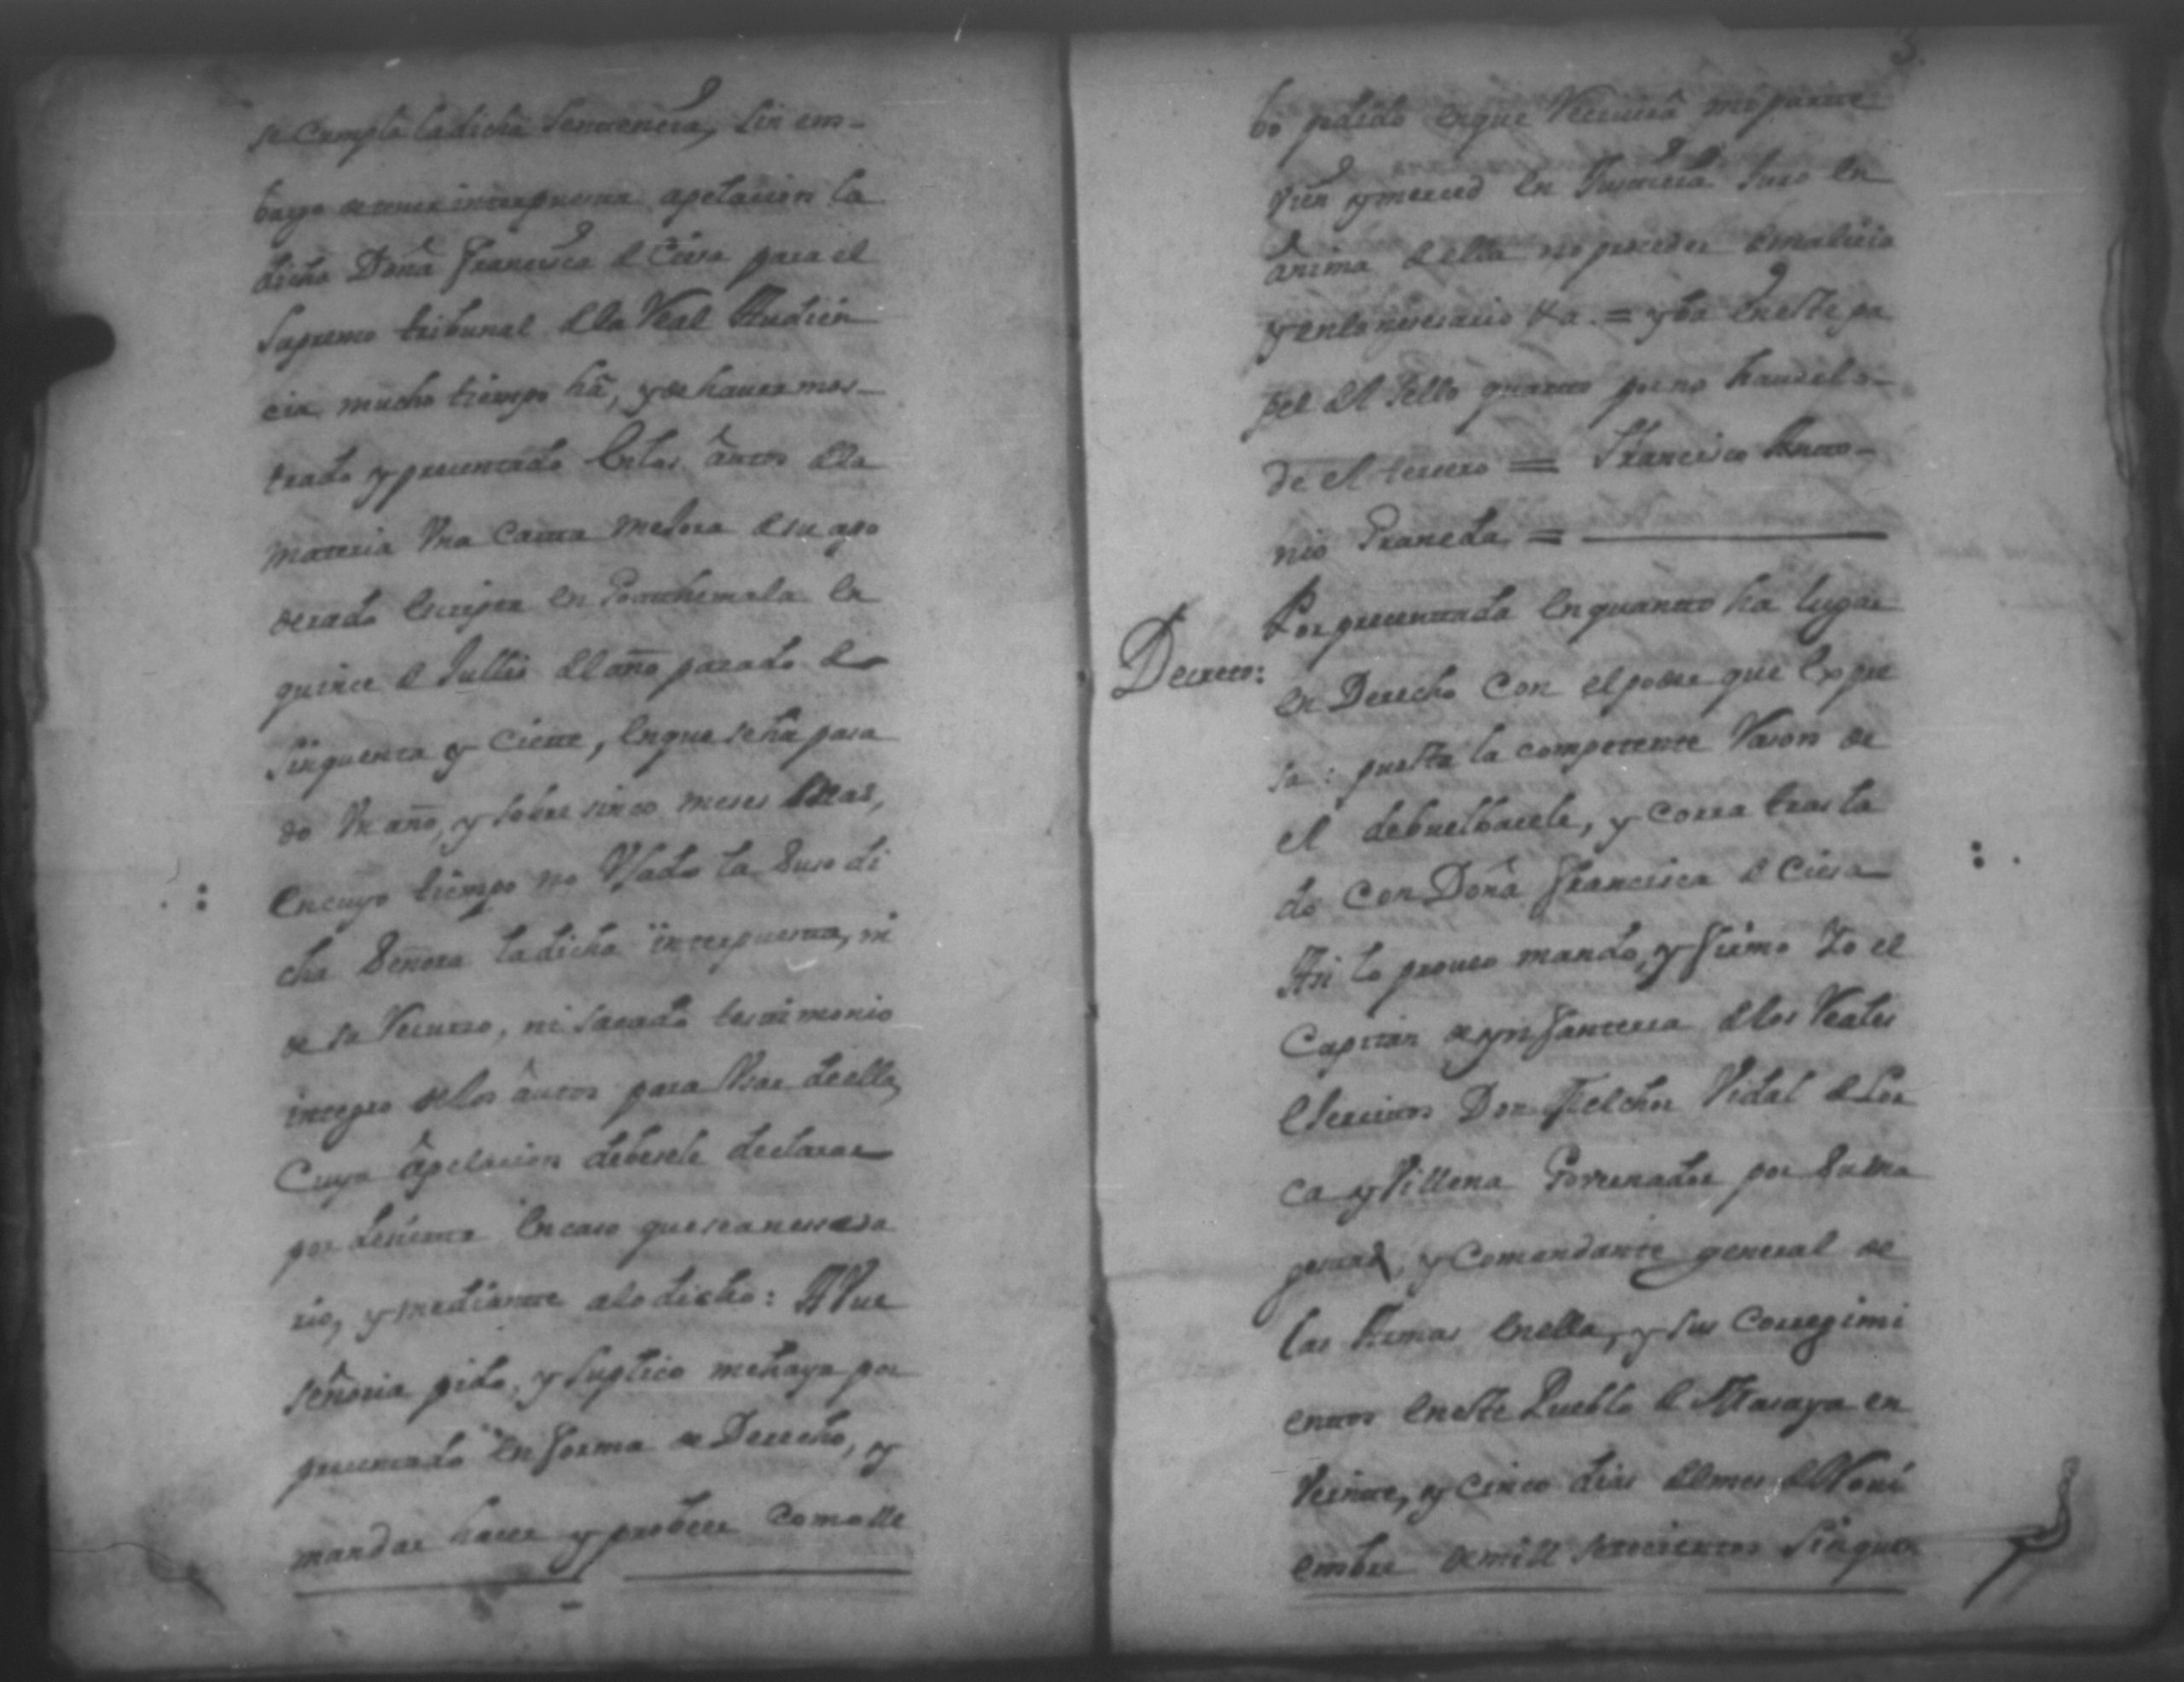 se Cumpla ladicha Sentencia, sin em-
bargo de tener interpuesta apelacion la
dicha Doña Francisca de Ciesa para el
Supremo tribunal dela Real Audien
cia mucho tiempo hâ, y de hauer mos-
trado y precentado En los autos dela
materia Una Carta mesora de su apo
derado Escripta en Goathemala En
quince de Jullio del año pasado de
Sinquenta y Ciette, En que se ha pasa
do Un año, y sobre sinco meses Mas,
En cuyo tiempo no Usado la Suso di
cha Señora la dicha interpuesta, ni
de su Recurso, ni sacado testimonio
integro de los autos para Usar de ella,
Cuya apelacion debesele declarar
por decierta En caso que sea nessesa
rio, y mediante a lo dicho: A Vue
señoria pido, y Suplico me haya por
precentado En forma de Derecho, y
mandar hacer y probeer Como lle
3
bo pedido En que Recivirá mi parte
vien y merced En Justicia Juro En
ânima de ella no proceder de malicia
y en lo nesesario Va. = y ba En este pa
pel del Sello quarto por no hauerlo
de el tercero = Francisco Anto-
nio Graneda =
Decreto:
Por precentada En quanto ha lugar
En Derecho Con el poder que Expre
sa: puesta la competente Rason de
el debuelbasele, y Corra trasla
do Con Doña Francisca de Ciesa
Asi lo proueo mando, y firmo Yo el
Capitan de ynfanteria de los Reales
Exercitos Don Melchor Vidal de Lor
ca y Villena Governador por Su Ma
gestad, y Comandante general de
las Armas En ella, y sus Corregimi
entos En este Pueblo de Masaya en
Veinte, y Cinco dias del mes de Novi
embre de mill setecientos Sinquen